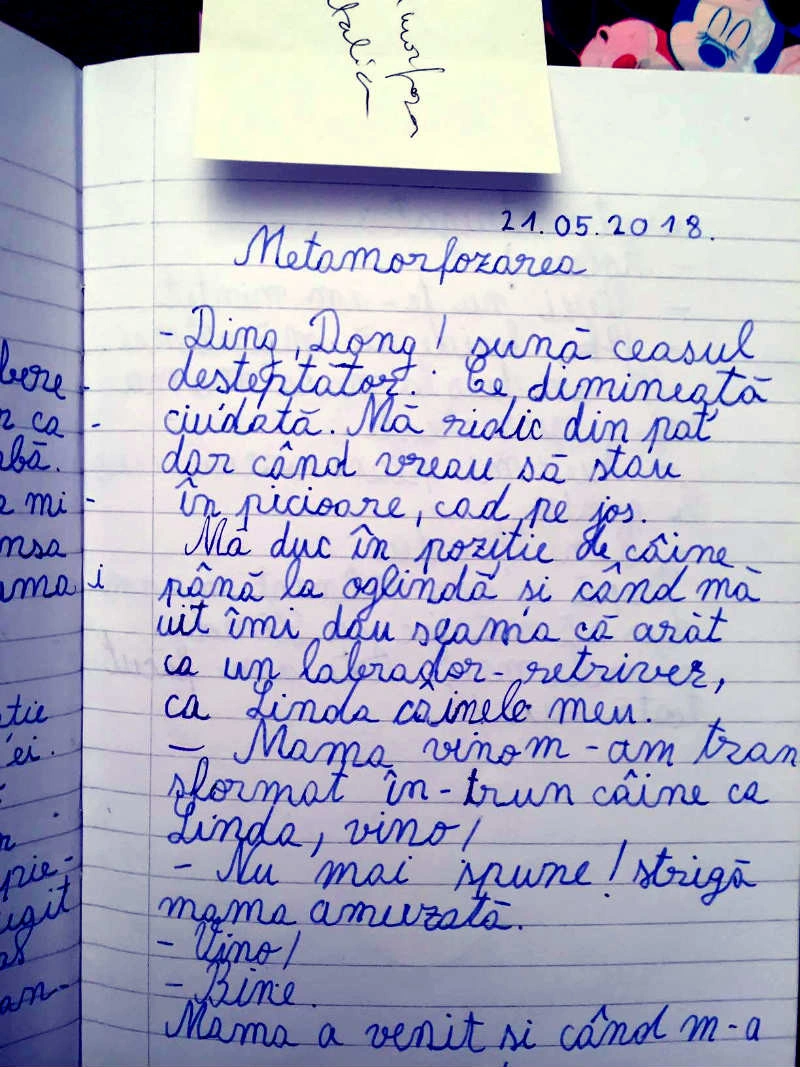 talia
21.05.2018.
Metamorfozarea
- Ding, Dong! sună ceasul
desteptător. Ce dimineață
ciudată. Mă ridic din pat
dar când vreau să stau
în picioare, cad pe jos.
Mă duc în pozitie de câine
până la oglindă si când mă
uit îmi dau seama că arăt
ca un labrador-retriver,
ca Linda câinele meu.
- Mama vino m-am tran
sformat în-trun câine ca
Linda, vino!
- Nu mai spune! strigă
mama amuzată.
- Vino!
- Bine.
Mama a venit si când m-a
bere
ca
bă.
mi
nsa
ama
tie
ei.
pie-
ugit
an-